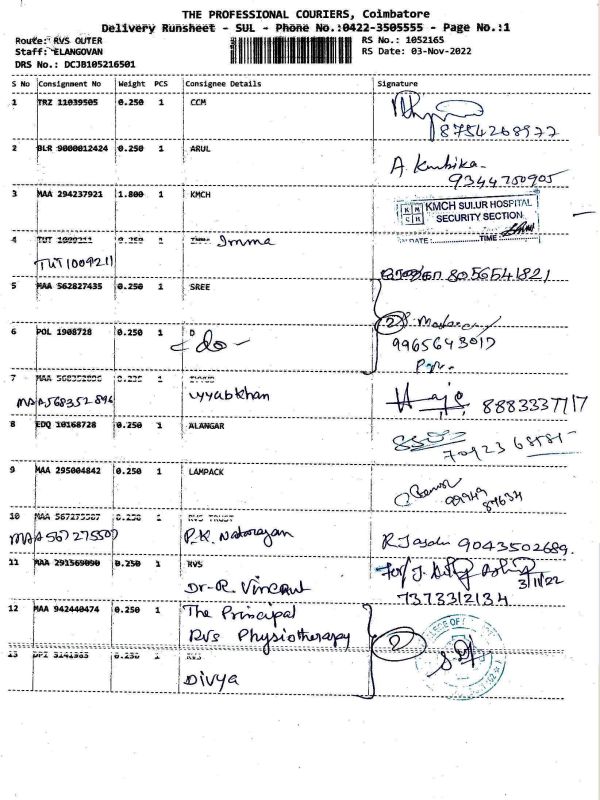 THE PROFESSIONAL COURIERS, Coimbatore
Delivery Runsheet - SUL - Phone No.:0422-3505555 - Page No.:1
Route: RVS OUTER RS No.: 1052165
Staff: ELANGOVAN RS Date: 03-Nov-2022
DRS No.: DCJB105216501
S No Consignment No Weight PCS Consignee Details Signature
1 TRZ 11039505 0.250 1 CCM
8754268977
2 BLR 9000012424 0.250 1 ARUL
9344700905
3 MAA 294237921 1.800 1 KMCH
KMCH SULUR HOSPITAL
SECURITY SECTION
DATE: TIME:
4 TUT 1009211 0.250 1 Imma
TUT1009211
8056541821
5 MAA 562827435 0.250 1 SREE
2
6 POL 1908728 0.250 1 D
-do-
9965643017
7 MAA 568352896 1
MAA568352896 uyyabkhan
8883337717
8 EDQ 10168728 0.250 1 ALANGAR
9 MAA 295004842 0.250 1 LAMPACK
10 MAA 567275507 0.250 1 RVS TRUST
MAA567275507 P.K. Natarayan
9043502689.
11 MAA 291569090 0.250 1 RVS
Dr-R. Vincent
3/11/22
7373312134
12 MAA 942440474 0.250 1 The Principal
RVS Physiotherapy
2
13 0.250 1 RVS
Divya